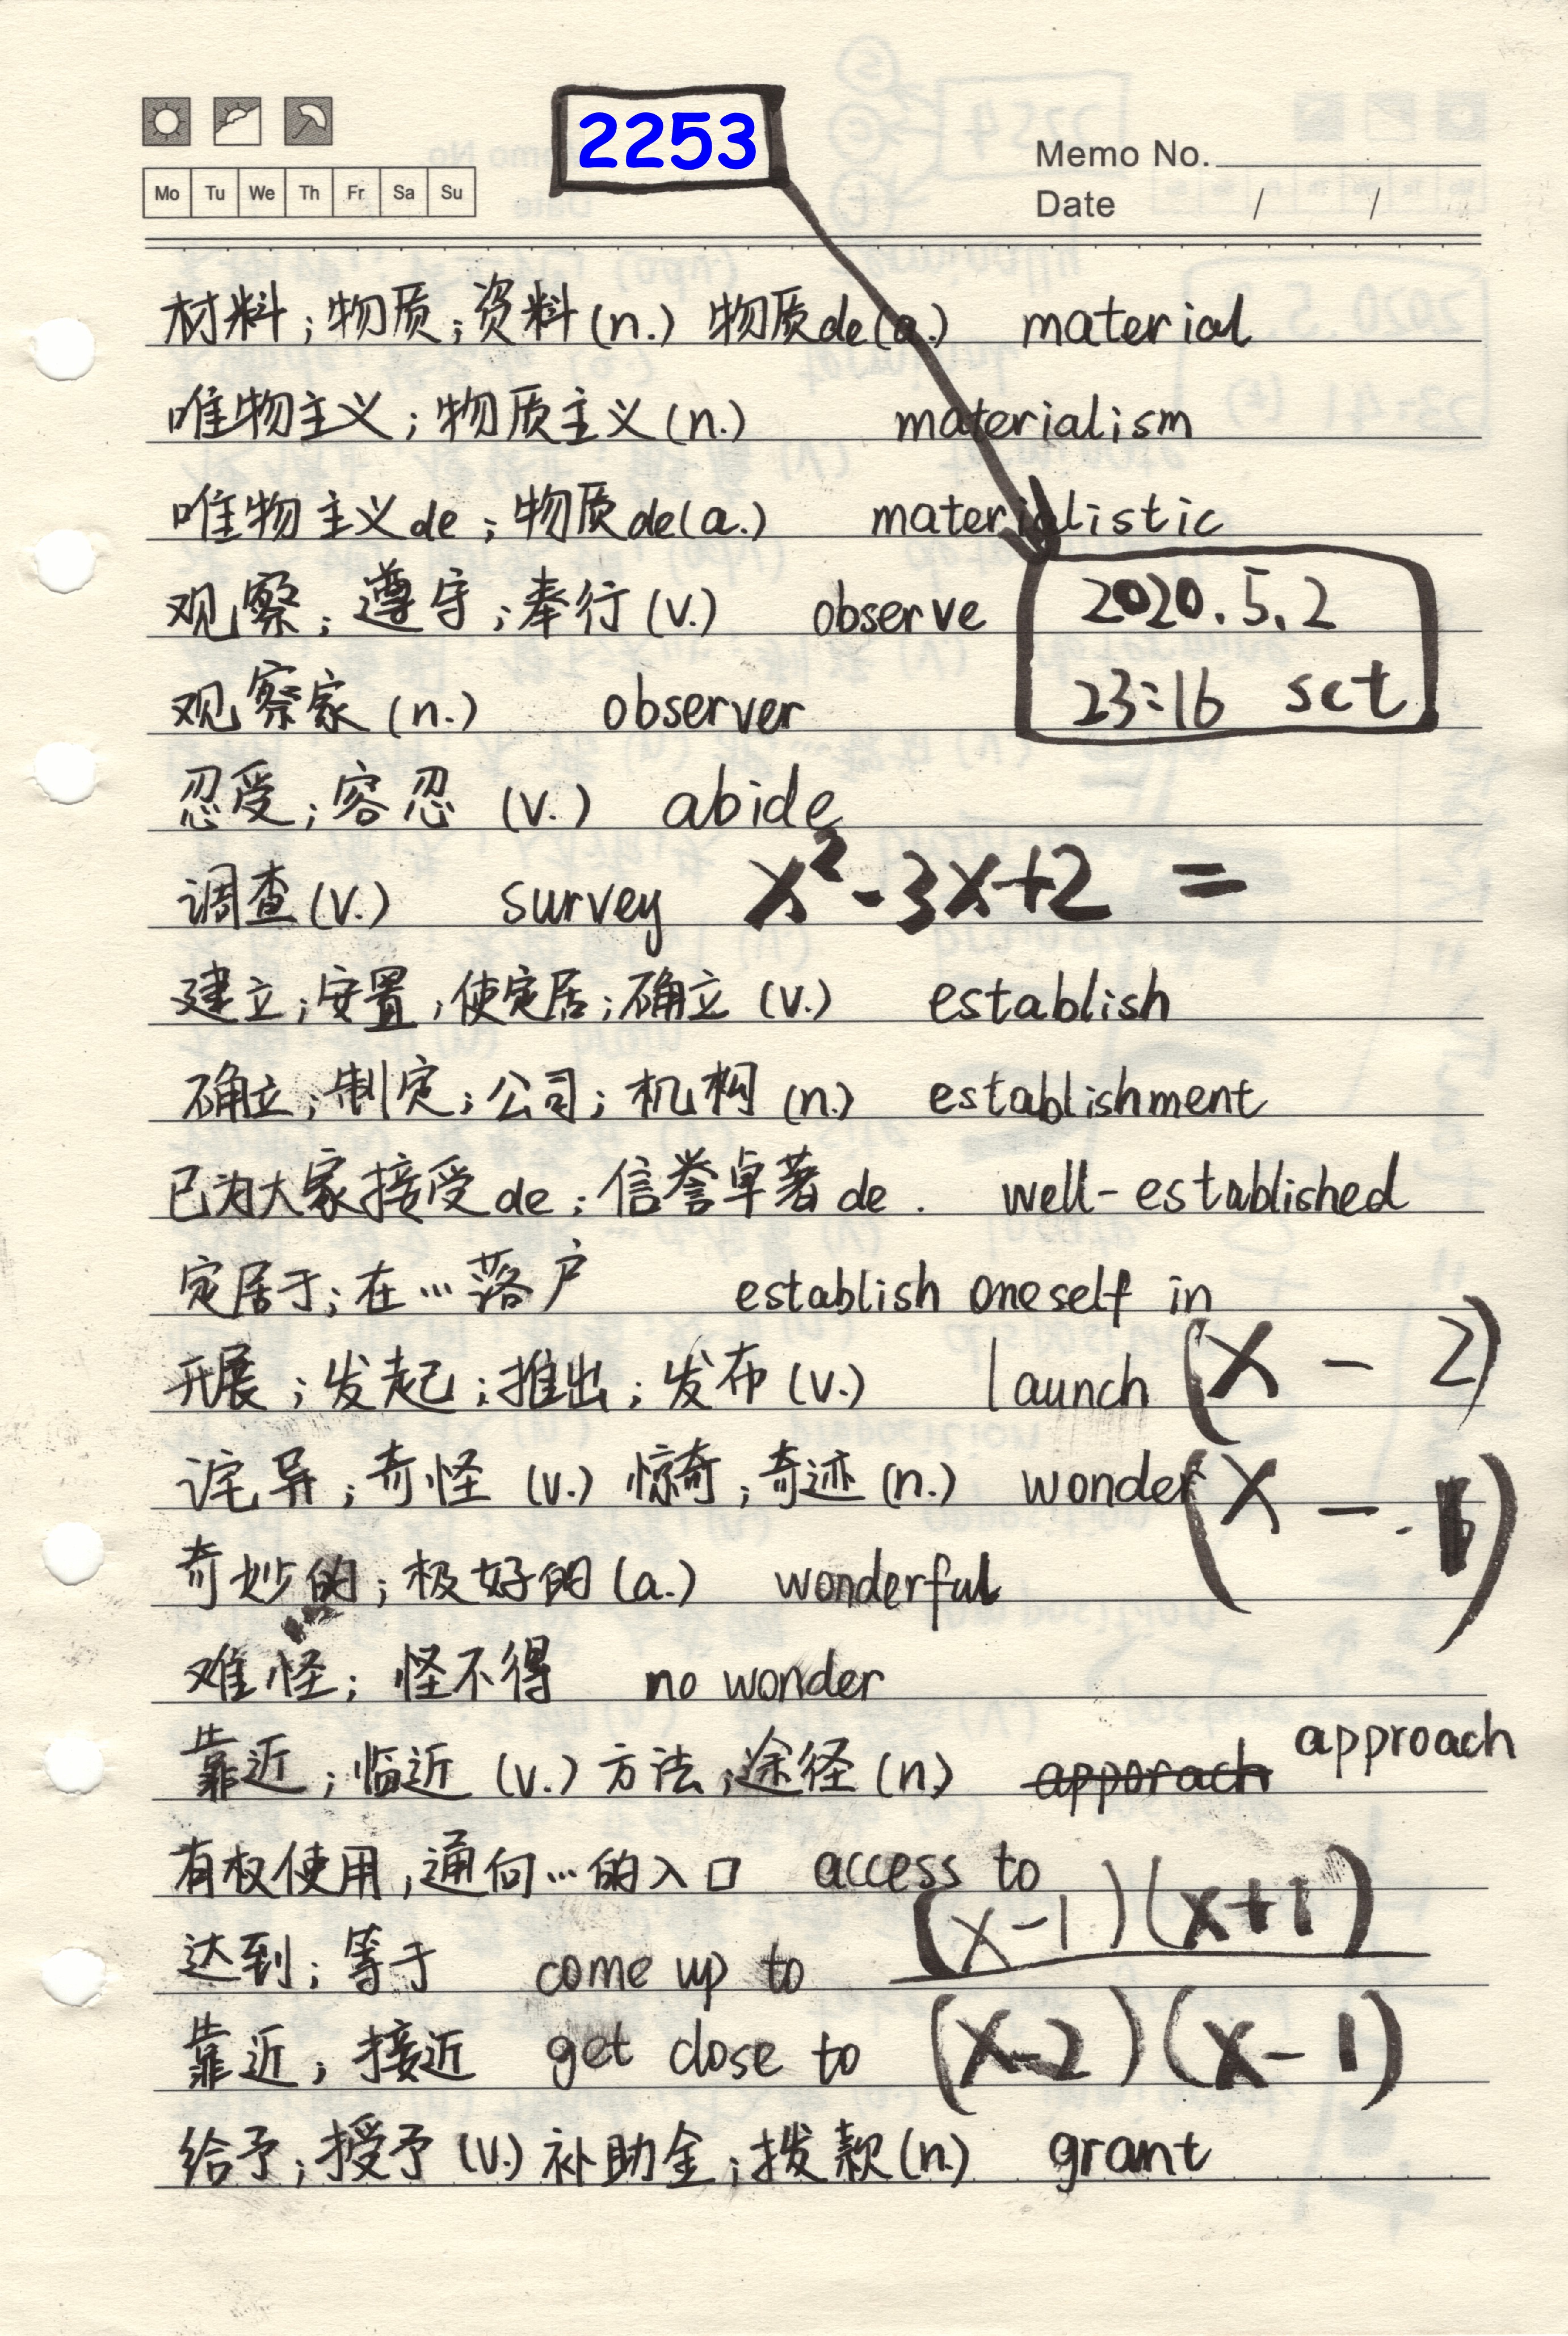 2253
Memo No.
Mo Tu We Th Fr Sa Su
Date / /
材料;物质;资料(n.) 物质de(a.) material
唯物主义;物质主义(n.) materialism
唯物主义de;物质de(a.) materialistic
观察;遵守;奉行(v.) observe
2020.5.2
观察家(n.) observer
23:16 sct
忍受;容忍 (v.) abide
调查(v.) survey x²-3x+2 =
建立;安置,使定居;确立(v.) establish
确立;制定;公司;机构(n.) establishment
已为大家接受de;信誉卓著de. well-established
定居于;在…落户 establish oneself in
开展;发起;推出;发布(v.) launch (x - 2)
诧异;奇怪(v.) 惊奇;奇迹(n.) wonder (x -
奇妙的;极好的(a.) wonderful
难怪;怪不得 no wonder
靠近;临近(v.)方法;途径(n.) apporach approach
有权使用,通向…的入口 access to
(x-1)(x+1)
达到;等于 come up to
靠近;接近 get close to (x-2)(x-1)
给予;授予(v.)补助金;拨款(n.) grant